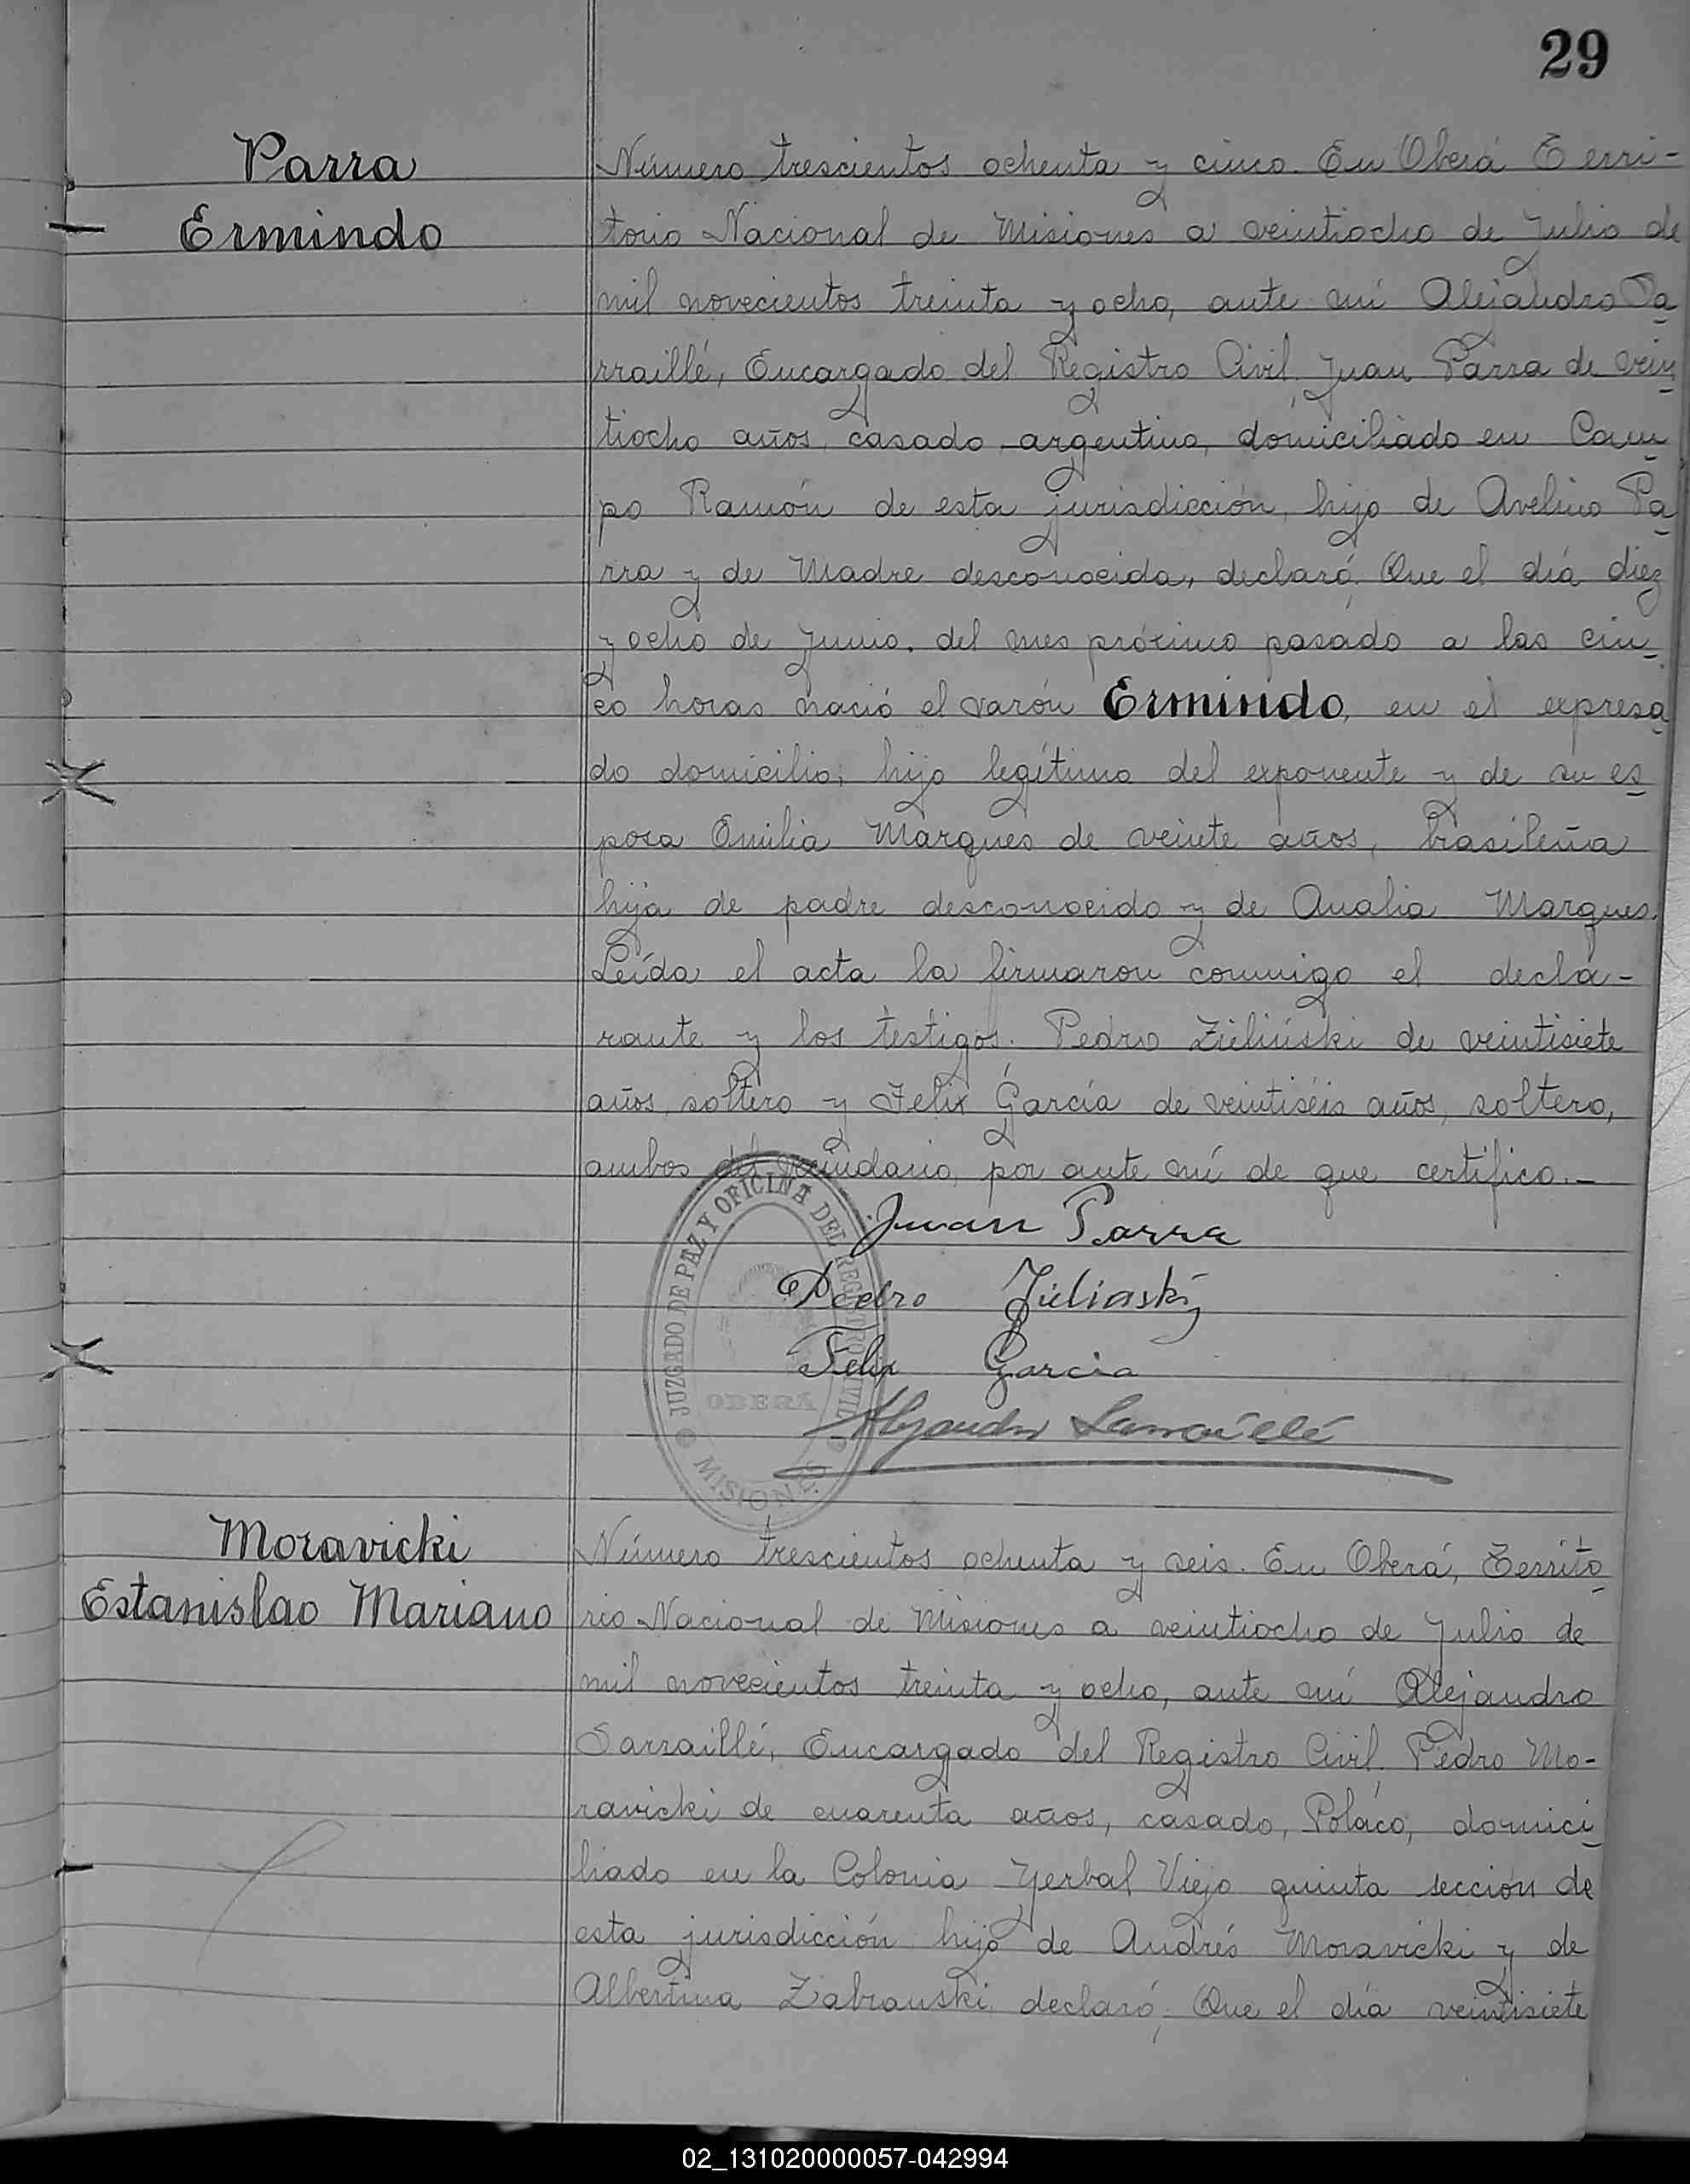 29
Parra
Ermindo
Número trescientos ochenta y cinco. En Oberá Terri-
torio Nacional de Misiones a veintiocho de Julio de
mil novecientos treinta y ocho, ante mí Alejandro Sa
rraillé, Encargado del Registro Civil. Juan Parra de vein
tiocho años, casado, argentino, domiciliado en Cam
po Ramón de esta jurisdicción, hijo de Avelino Pa
rra y de Madre desconocida, declaró; Que el día diez
y ocho de Junio. del mes próximo pasado a las cin-
co horas nació el varón Ermindo, en el expresa
do domicilio; hijo legítimo del exponente y de su es
posa Emilia Marques de veinte años, brasileña
hija de padre desconocido y de Analia Marques.
Leída el acta la firmaron conmigo el decla-
rante y los testigos. Pedro Zieliński de veintisiete
años, soltero y Felix García de veintiséis años, soltero,
ambos del vecindario, por ante mí de que certifico.-
JUZGADO DE PAZ Y OFICINA DEL REGISTRO CIVIL
OBERA
MISIONES
Juan Parra
Pedro Zielinski
Felix Garcia
Alejandro Sarraillé
Moravicki
Estanislao Mariano
Número trescientos ochenta y seis. En Oberá, Territo
rio Nacional de Misiones a veintiocho de Julio de
mil novecientos treinta y ocho, ante mí Alejandro
Sarraillé, Encargado del Registro Civil. Pedro Mo-
ravicki de cuarenta años, casado, Polaco, domici
liado en la Colonia Yerbal Viejo quinta sección de
esta jurisdicción hijo de Andrés Moravicki y de
Albertina Zabranski, declaró; Que el día veintisiete
02_131020000057-042994